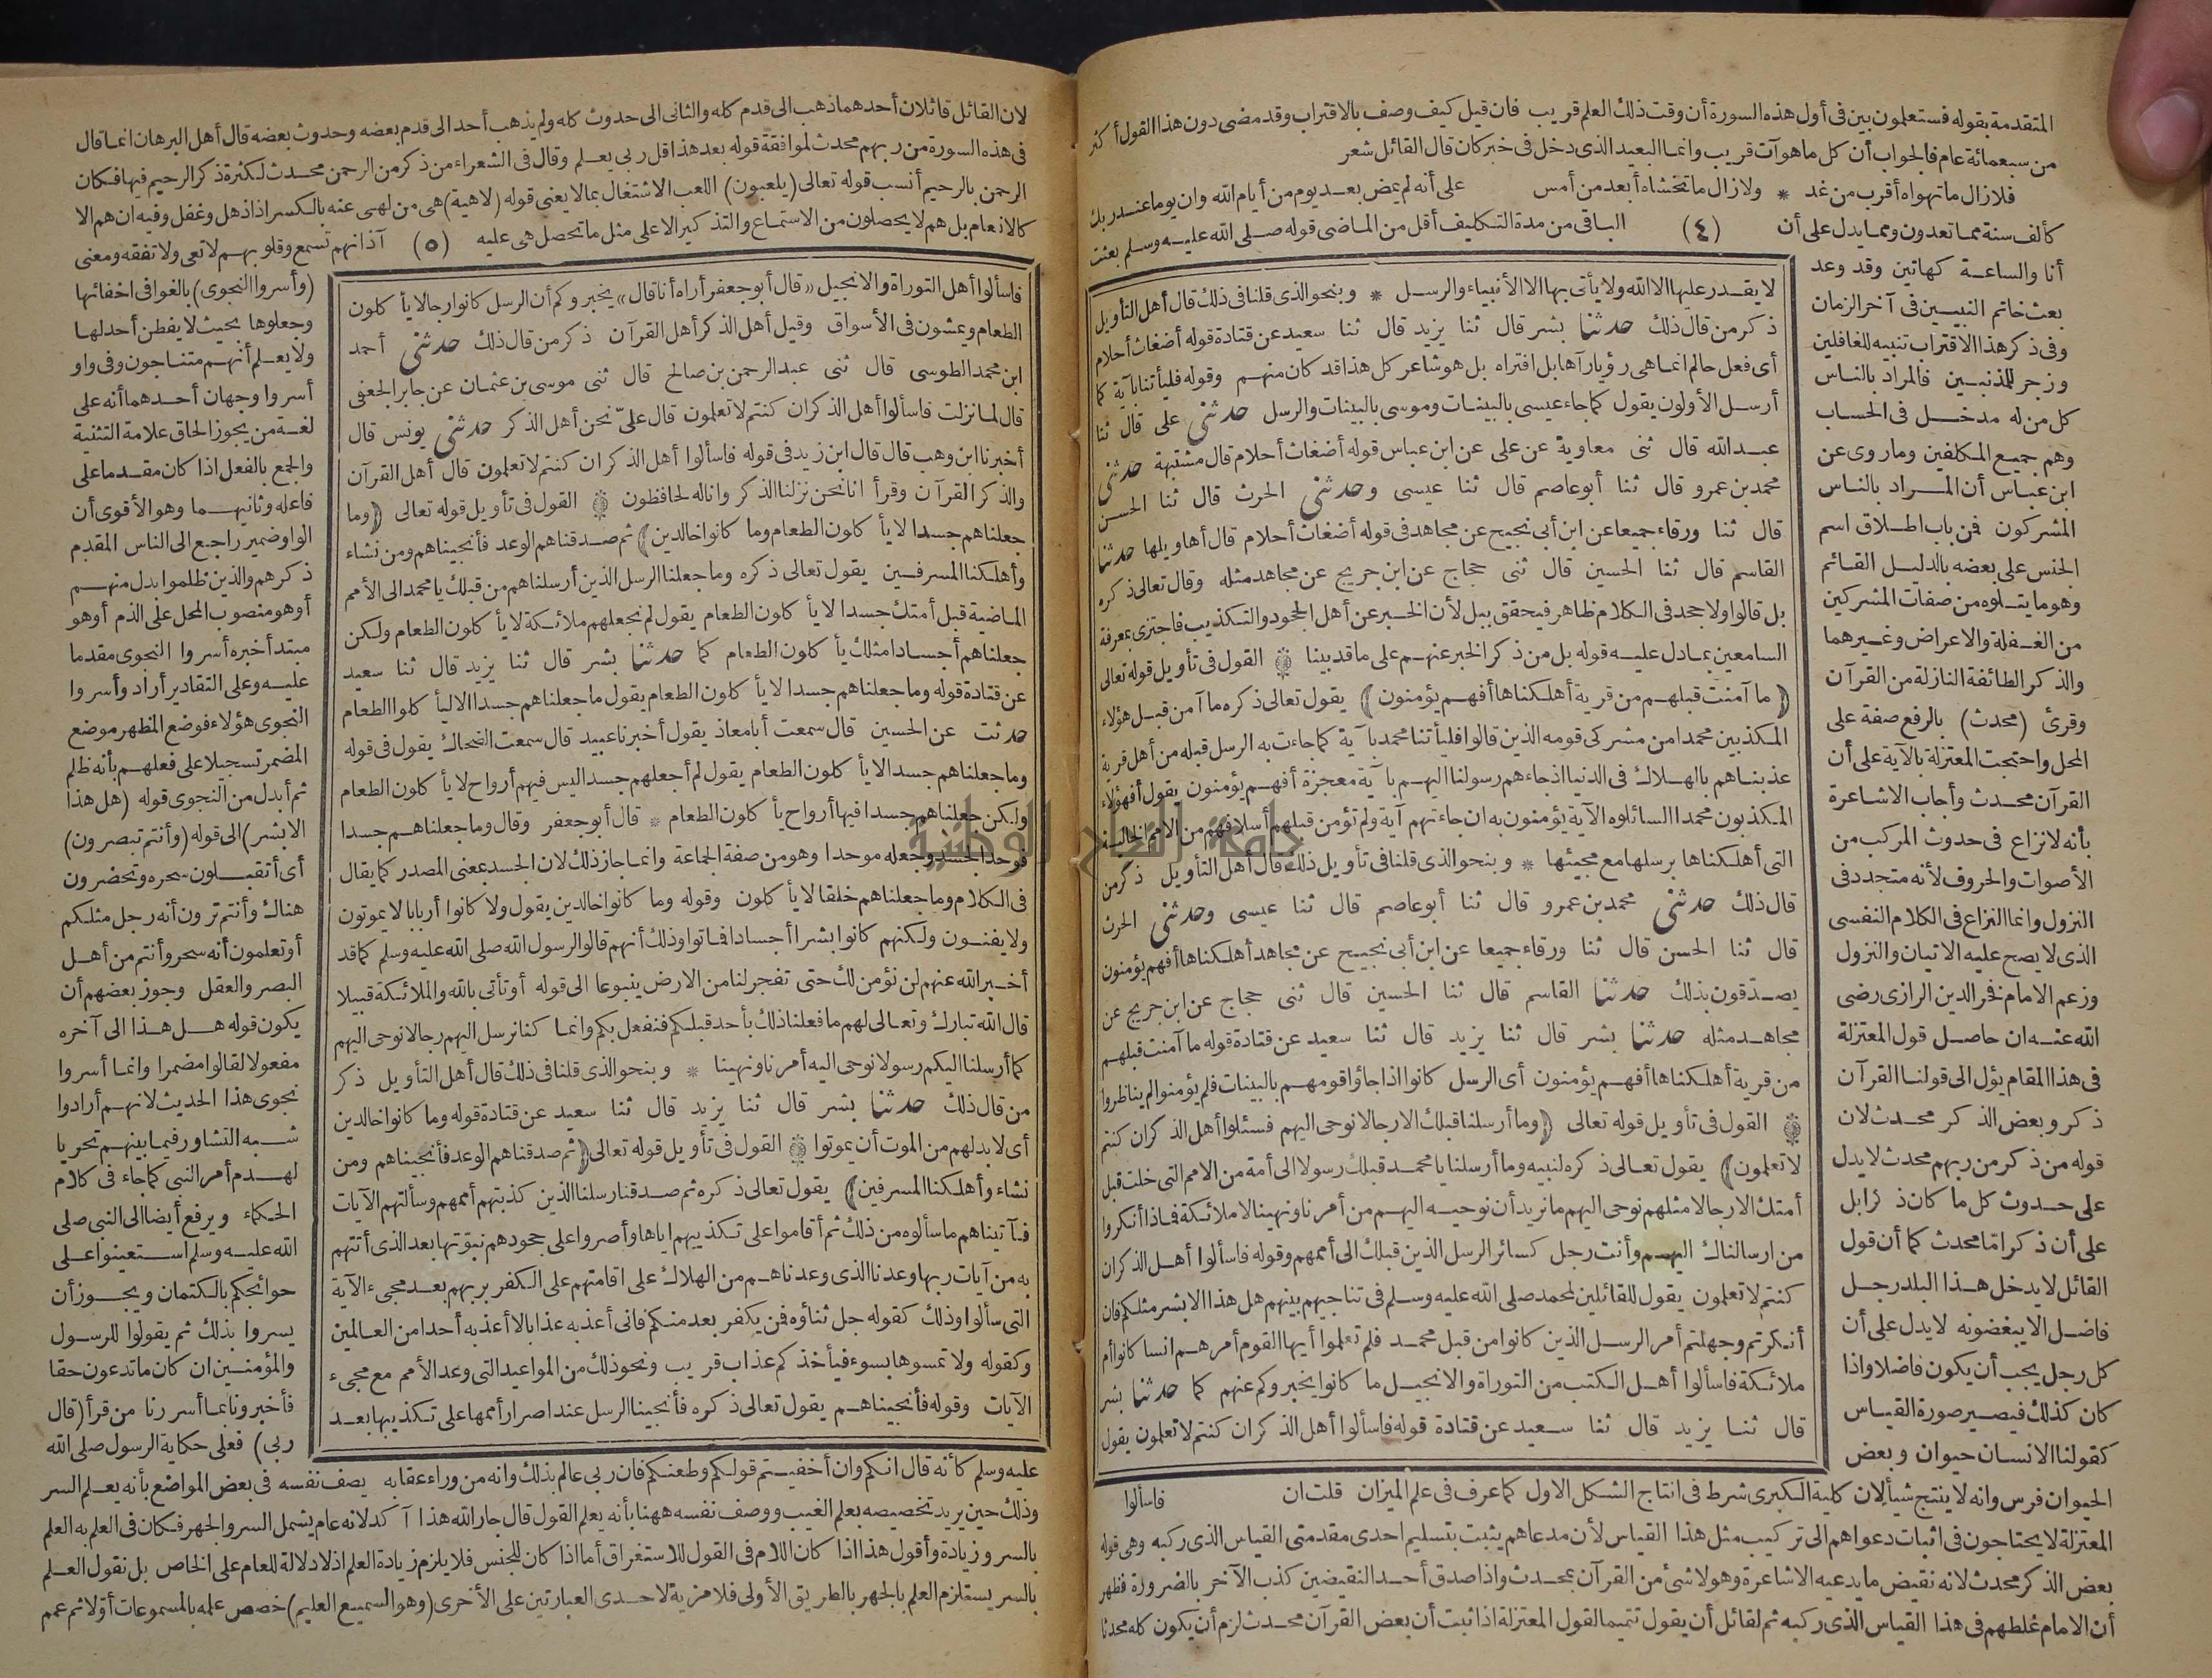 المتقدمة بقوله فستعلمون بين في أول هذه السورة أن وقت ذلك العلم قريب فان قيل كيف وصف بالاقتراب وقد مضى دون هذا القول أكثر
من سبعمائة عام فالجواب أن كل ما هو آت قريب وانما البعيد الذى دخل فى خبر كان قال القائل شعر
فلا زال ما تهواه أقرب من غد * ولا زال ما تخشاه أبعد من أمس على أنه لم يمض بعد يوم من أيام الله وان يوما عند ربك
كألف سنة مما تعدون ومما يدل على أن (٤) الباقى من مدة التكليف أقل من الماضى قوله صلى الله عليه وسلم بعثت
أنا والساعة كهاتين وقد وعد
بعث خاتم النبيين فى آخر الزمان
وفى ذكر هذا الاقتراب تنبيه للغافلين
وزجر للمذنبين فالمراد بالناس
كل من له مدخل فى الحساب
وهم جميع المكلفين وما روى عن
ابن عباس أن المراد بالناس
المشركون فمن باب اطلاق اسم
الجنس على بعضه بالدليل القائم
وهو ما يتلوه من صفات المشركين
من الغفلة والاعراض وغيرهما
والذكر الطائفة النازلة من القرآن
وقرئ (محدث) بالرفع صفة على
المحل واحتجت المعتزلة بالآية على أن
القرآن محدث وأجاب الاشاعرة
بأنه لانزاع فى حدوث المركب من
الأصوات والحروف لأنه متجدد فى
النزول وانما النزاع فى الكلام النفسى
الذى لا يصح عليه الاتيان والنزول
وزعم الامام فخر الدين الرازى رضى
الله عنه ان حاصل قول المعتزلة
فى هذا المقام يؤل الى قولنا القرآن
ذكر وبعض الذكر محدث لان
قوله من ذكر من ربهم محدث لا يدل
على حدوث كل ما كان ذكرا بل
على أن ذكرا ما محدث كما أن قول
القائل لا يدخل هذا البلد رجل
فاضل الا يبغضونه لا يدل على أن
كل رجل يجب أن يكون فاضلا واذا
كان كذلك فيصير صورة القياس
كقولنا الانسان حيوان وبعض
لا يقدر عليها الا الله ولا يأتى بها الا الأنبياء والرسل * وبنحو الذى قلنا فى ذلك قال أهل التأويل
ذكر من قال ذلك حدثنا بشر قال ثنا يزيد قال ثنا سعيد عن قتادة قوله أضغاث أحلام
أى فعل حالم انما هى رؤيا رآها بل افتراه بل هو شاعر كل هذا قد كان منهم وقوله فليأتنا بآية كما
أرسل الأولون يقول كما جاء عيسى بالبينات وموسى بالبينات والرسل حدثنى على قال ثنا
عبد الله قال ثنى معاوية عن على عن ابن عباس قوله أضغاث أحلام قال مشتبهة حدثنى
محمد بن عمرو قال ثنا أبو عاصم قال ثنا عيسى وحدثنى الحرث قال ثنا الحسن
قال ثنا ورقاء جميعا عن ابن أبى نجيح عن مجاهد فى قوله أضغاث أحلام قال أهاويلها حدثنا
القاسم قال ثنا الحسين قال ثنى حجاج عن ابن جريج عن مجاهد مثله وقال تعالى ذكره
بل قالوا ولا جحد فى الكلام ظاهر فيحقق ببل لأن الخبر عن أهل الجحود والتكذيب فاجتزى بمعرفة
السامعين بما دل عليه قوله بل من ذكر الخبر عنهم على ما قد بينا ۞ القول فى تأويل قوله تعالى
﴿ما آمنت قبلهم من قرية أهلكناها أفهم يؤمنون﴾ يقول تعالى ذكره ما آمن قبل هؤلاء
المكذبين محمدا من مشركى قومه الذين قالوا فليأتنا محمد بآية كما جاءت به الرسل قبله من أهل قرية
عذبناهم بالهلاك فى الدنيا اذ جاءهم رسولنا اليهم بآية معجزة أفهم يؤمنون يقول أفهؤلاء
المكذبون محمدا السائلوه الآية يؤمنون به ان جاءتهم آية ولم تؤمن قبلهم أسلافهم من الامم الخالية
التى أهلكناها برسلها مع مجيئها * وبنحو الذى قلنا فى تأويل ذلك قال أهل التأويل ذكر من
قال ذلك حدثنى محمد بن عمرو قال ثنا أبو عاصم قال ثنا عيسى وحدثنى الحرث
قال ثنا الحسن قال ثنا ورقاء جميعا عن ابن أبى نجيح عن مجاهد أهلكناها أفهم يؤمنون
يصدقون بذلك حدثنا القاسم قال ثنا الحسين قال ثنى حجاج عن ابن جريج عن
مجاهد مثله حدثنا بشر قال ثنا يزيد قال ثنا سعيد عن قتادة قوله ما آمنت قبلهم
من قرية أهلكناها أفهم يؤمنون أى الرسل كانوا اذا جاؤا قومهم بالبينات فلم يؤمنوا لم يناظروا
۞ القول فى تأويل قوله تعالى ﴿وما أرسلنا قبلك الا رجالا نوحى اليهم فسئلوا أهل الذكر ان كنتم
لا تعلمون﴾ يقول تعالى ذكره لنبيه وما أرسلنا يا محمد قبلك رسولا الى أمة من الامم التى خلت قبل
أمتك الا رجالا مثلهم نوحى اليهم ما نريد أن نوحيه اليهم من أمرنا ونهينا لا ملائكة فاذا أنكروا
من ارسالناك اليهم وأنت رجل كسائر الرسل الذين قبلك الى أممهم وقوله فاسألوا أهل الذكر ان
كنتم لا تعلمون يقول للقائلين لمحمد صلى الله عليه وسلم فى تناجيهم بينهم هل هذا الا بشر مثلكم فان
أنكرتم وجهلتم أمر الرسل الذين كانوا من قبل محمد فلم تعلموا أيها القوم أمرهم انسا كانوا أم
ملائكة فاسألوا أهل الكتب من التوراة والانجيل ما كانوا يخبروكم عنهم كما حدثنا بشر
قال ثنا يزيد قال ثنا سعيد عن قتادة قوله فاسألوا أهل الذكر ان كنتم لا تعلمون يقول
الحيوان فرس وانه لا ينتج شيأ لان كلية الكبرى شرط فى انتاج الشكل الاول كما عرف فى علم الميزان قلت ان فاسألوا
المعتزلة لا يحتاجون فى اثبات دعواهم الى تركيب مثل هذا القياس لأن مدعاهم يثبت بتسليم احدى مقدمتى القياس الذى ركبه وهى قوله
بعض الذكر محدث لانه نقيض ما يدعيه الاشاعرة وهو لاشئ من القرآن بمحدث واذا صدق أحد النقيضين كذب الآخر بالضرورة فظهر
أن الامام غلطهم فى هذا القياس الذى ركبه ثم لقائل أن يقول تتميما لقول المعتزلة اذا ثبت أن بعض القرآن محدث لزم أن يكون كله محدثا
لان القائل قائلان أحدهما ذهب الى قدم كله والثانى الى حدوث كله ولم يذهب أحد الى قدم بعضه وحدوث بعضه قال أهل البرهان انما قال
فى هذه السورة من ربهم محدث لموافقة قوله بعد هذا قل ربى يعلم وقال فى الشعراء من ذكر من الرحمن محدث لكثرة ذكر الرحيم فيها فكان
الرحمن بالرحيم أنسب قوله تعالى (يلعبون) اللعب الاشتغال بما لا يعنى قوله (لاهية) هى من لهى عنه بالكسر اذا ذهل وغفل وفيه ان هم الا
كالانعام بل هم لا يحصلون من الاستماع والتذكير الا على مثل ما تحصل هى عليه (٥) آذانهم تسمع وقلوبهم لا تعى ولا تفقه ومعنى
فاسألوا أهل التوراة والانجيل «قال أبو جعفر أراه أنا قال» يخبروكم أن الرسل كانوا رجالا يأكلون
الطعام ويمشون فى الأسواق وقيل أهل الذكر أهل القرآن ذكر من قال ذلك حدثنى أحمد
ابن محمد الطوسى قال ثنى عبد الرحمن بن صالح قال ثنى موسى بن عثمان عن جابر الجعفى
قال لما نزلت فاسألوا أهل الذكر ان كنتم لا تعلمون قال علىّ نحن أهل الذكر حدثنى يونس قال
أخبرنا ابن وهب قال قال ابن زيد فى قوله فاسألوا أهل الذكر ان كنتم لا تعلمون قال أهل القرآن
والذكر القرآن وقرأ انا نحن نزلنا الذكر وانا له لحافظون ۞ القول فى تأويل قوله تعالى ﴿وما
جعلناهم جسدا لا يأكلون الطعام وما كانوا خالدين﴾ ثم صدقناهم الوعد فأنجيناهم ومن نشاء
وأهلكنا المسرفين يقول تعالى ذكره وما جعلنا الرسل الذين أرسلناهم من قبلك يا محمد الى الأمم
الماضية قبل أمتك جسدا لا يأكلون الطعام يقول لم نجعلهم ملائكة لا يأكلون الطعام ولكن
جعلناهم أجسادا مثلك يأكلون الطعام كما حدثنا بشر قال ثنا يزيد قال ثنا سعيد
عن قتادة قوله وما جعلناهم جسدا لا يأكلون الطعام يقول ما جعلناهم جسدا الا ليأكلوا الطعام
حدثت عن الحسين قال سمعت أبا معاذ يقول أخبرنا عبيد قال سمعت الضحاك يقول فى قوله
وما جعلناهم جسدا لا يأكلون الطعام يقول لم أجعلهم جسدا ليس فيهم أرواح لا يأكلون الطعام
ولكن جعلناهم جسدا فيها أرواح يأكلون الطعام * قال أبو جعفر وقال وما جعلناهم جسدا
فوحد الجسد وجعله موحدا وهو من صفة الجماعة وانما جاز ذلك لان الجسد بمعنى المصدر كما يقال
فى الكلام وما جعلناهم خلقا لا يأكلون وقوله وما كانوا خالدين يقول ولا كانوا أربابا لا يموتون
ولا يفنون ولكنهم كانوا بشرا أجسادا فماتوا وذلك أنهم قالوا لرسول الله صلى الله عليه وسلم كما قد
أخبر الله عنهم لن نؤمن لك حتى تفجر لنا من الارض ينبوعا الى قوله أو تأتى بالله والملائكة قبيلا
قال الله تبارك وتعالى لهم ما فعلنا ذلك بأحد قبلكم فنفعل بكم وانما كنا نرسل اليهم رجالا نوحى اليهم
كما أرسلنا اليكم رسولا نوحى اليه أمرنا ونهينا * وبنحو الذى قلنا فى ذلك قال أهل التأويل ذكر
من قال ذلك حدثنا بشر قال ثنا يزيد قال ثنا سعيد عن قتادة قوله وما كانوا خالدين
أى لا بد لهم من الموت أن يموتوا ۞ القول فى تأويل قوله تعالى ﴿ثم صدقناهم الوعد فأنجيناهم ومن
نشاء وأهلكنا المسرفين﴾ يقول تعالى ذكره ثم صدقنا رسلنا الذين كذبتهم أممهم وسألتهم الآيات
فآتيناهم ما سألوه من ذلك ثم أقاموا على تكذيبهم اياها وأصروا على جحودهم نبوتها بعد الذى أتتهم
به من آيات ربها وعدنا الذى وعدناهم من الهلاك على اقامتهم على الكفر بربهم بعد مجىء الآية
التى سألوا وذلك كقوله جل ثناؤه فمن يكفر بعد منكم فانى أعذبه عذابا لا أعذبه أحدا من العالمين
وكقوله ولا تمسوها بسوء فيأخذكم عذاب قريب ونحو ذلك من المواعيد التى وعد الأمم مع مجىء
الآيات وقوله فأنجيناهم يقول تعالى ذكره فأنجينا الرسل عند اصرار أممها على تكذيبها بعد
(وأسروا النجوى) بالغوا فى اخفائها
وجعلوها بحيث لا يفطن أحد لها
ولا يعلم أنهم متناجون وفى واو
أسروا وجهان أحدهما أنه على
لغة من يجوز الحاق علامة التثنية
والجمع بالفعل اذا كان مقدما على
فاعله وثانيهما وهو الأقوى أن
الواو ضمير راجع الى الناس المقدم
ذكرهم والذين ظلموا بدل منهم
أو هو منصوب المحل على الذم أو هو
مبتدأ خبره أسروا النجوى مقدما
عليه وعلى التقادير أراد وأسروا
النجوى هؤلاء فوضع المظهر موضع
المضمر تسجيلا على فعلهم بأنه ظلم
ثم أبدل من النجوى قوله (هل هذا
الا بشر) الى قوله (وأنتم تبصرون)
أى أتقبلون سحره وتحضرون
هناك وأنتم ترون أنه رجل مثلكم
أو تعلمون أنه سحر وأنتم من أهل
البصر والعقل وجوز بعضهم أن
يكون قوله هل هذا الى آخره
مفعولا لقالوا مضمرا وانما أسروا
نجوى هذا الحديث لانهم أرادوا
شبه التشاور فيما بينهم تحريا
لهدم أمر النبى كما جاء فى كلام
الحكماء ويرفع أيضا الى النبى صلى
الله عليه وسلم استعينوا على
حوائجكم بالكتمان ويجوز أن
يسروا بذلك ثم يقولوا للرسول
والمؤمنين ان كان ما تدعون حقا
فأخبرونا بما أسررنا من قرأ (قال
ربى) فعلى حكاية الرسول صلى الله
عليه وسلم كأنه قال انكم وان أخفيتم قولكم وطعنكم فان ربى عالم بذلك وانه من وراء عقابه يصف نفسه فى بعض المواضع بأنه يعلم السر
وذلك حين يريد تخصيصه بعلم الغيب ووصف نفسه ههنا بأنه يعلم القول قال جار الله هذا آكد لانه عام يشمل السر والجهر فكان فى العلم به العلم
بالسر وزيادة وأقول هذا اذا كان اللام فى القول للاستغراق أما اذا كان للجنس فلا يلزم زيادة العلم اذ لا دلالة للعام على الخاص بل نقول العلم
بالسر يستلزم العلم بالجهر بالطريق الأولى فلا مزية لاحدى العبارتين على الأخرى (وهو السميع العليم) خصص علمه بالمسموعات أولا ثم عمم
جامعة النجاح الوطنية